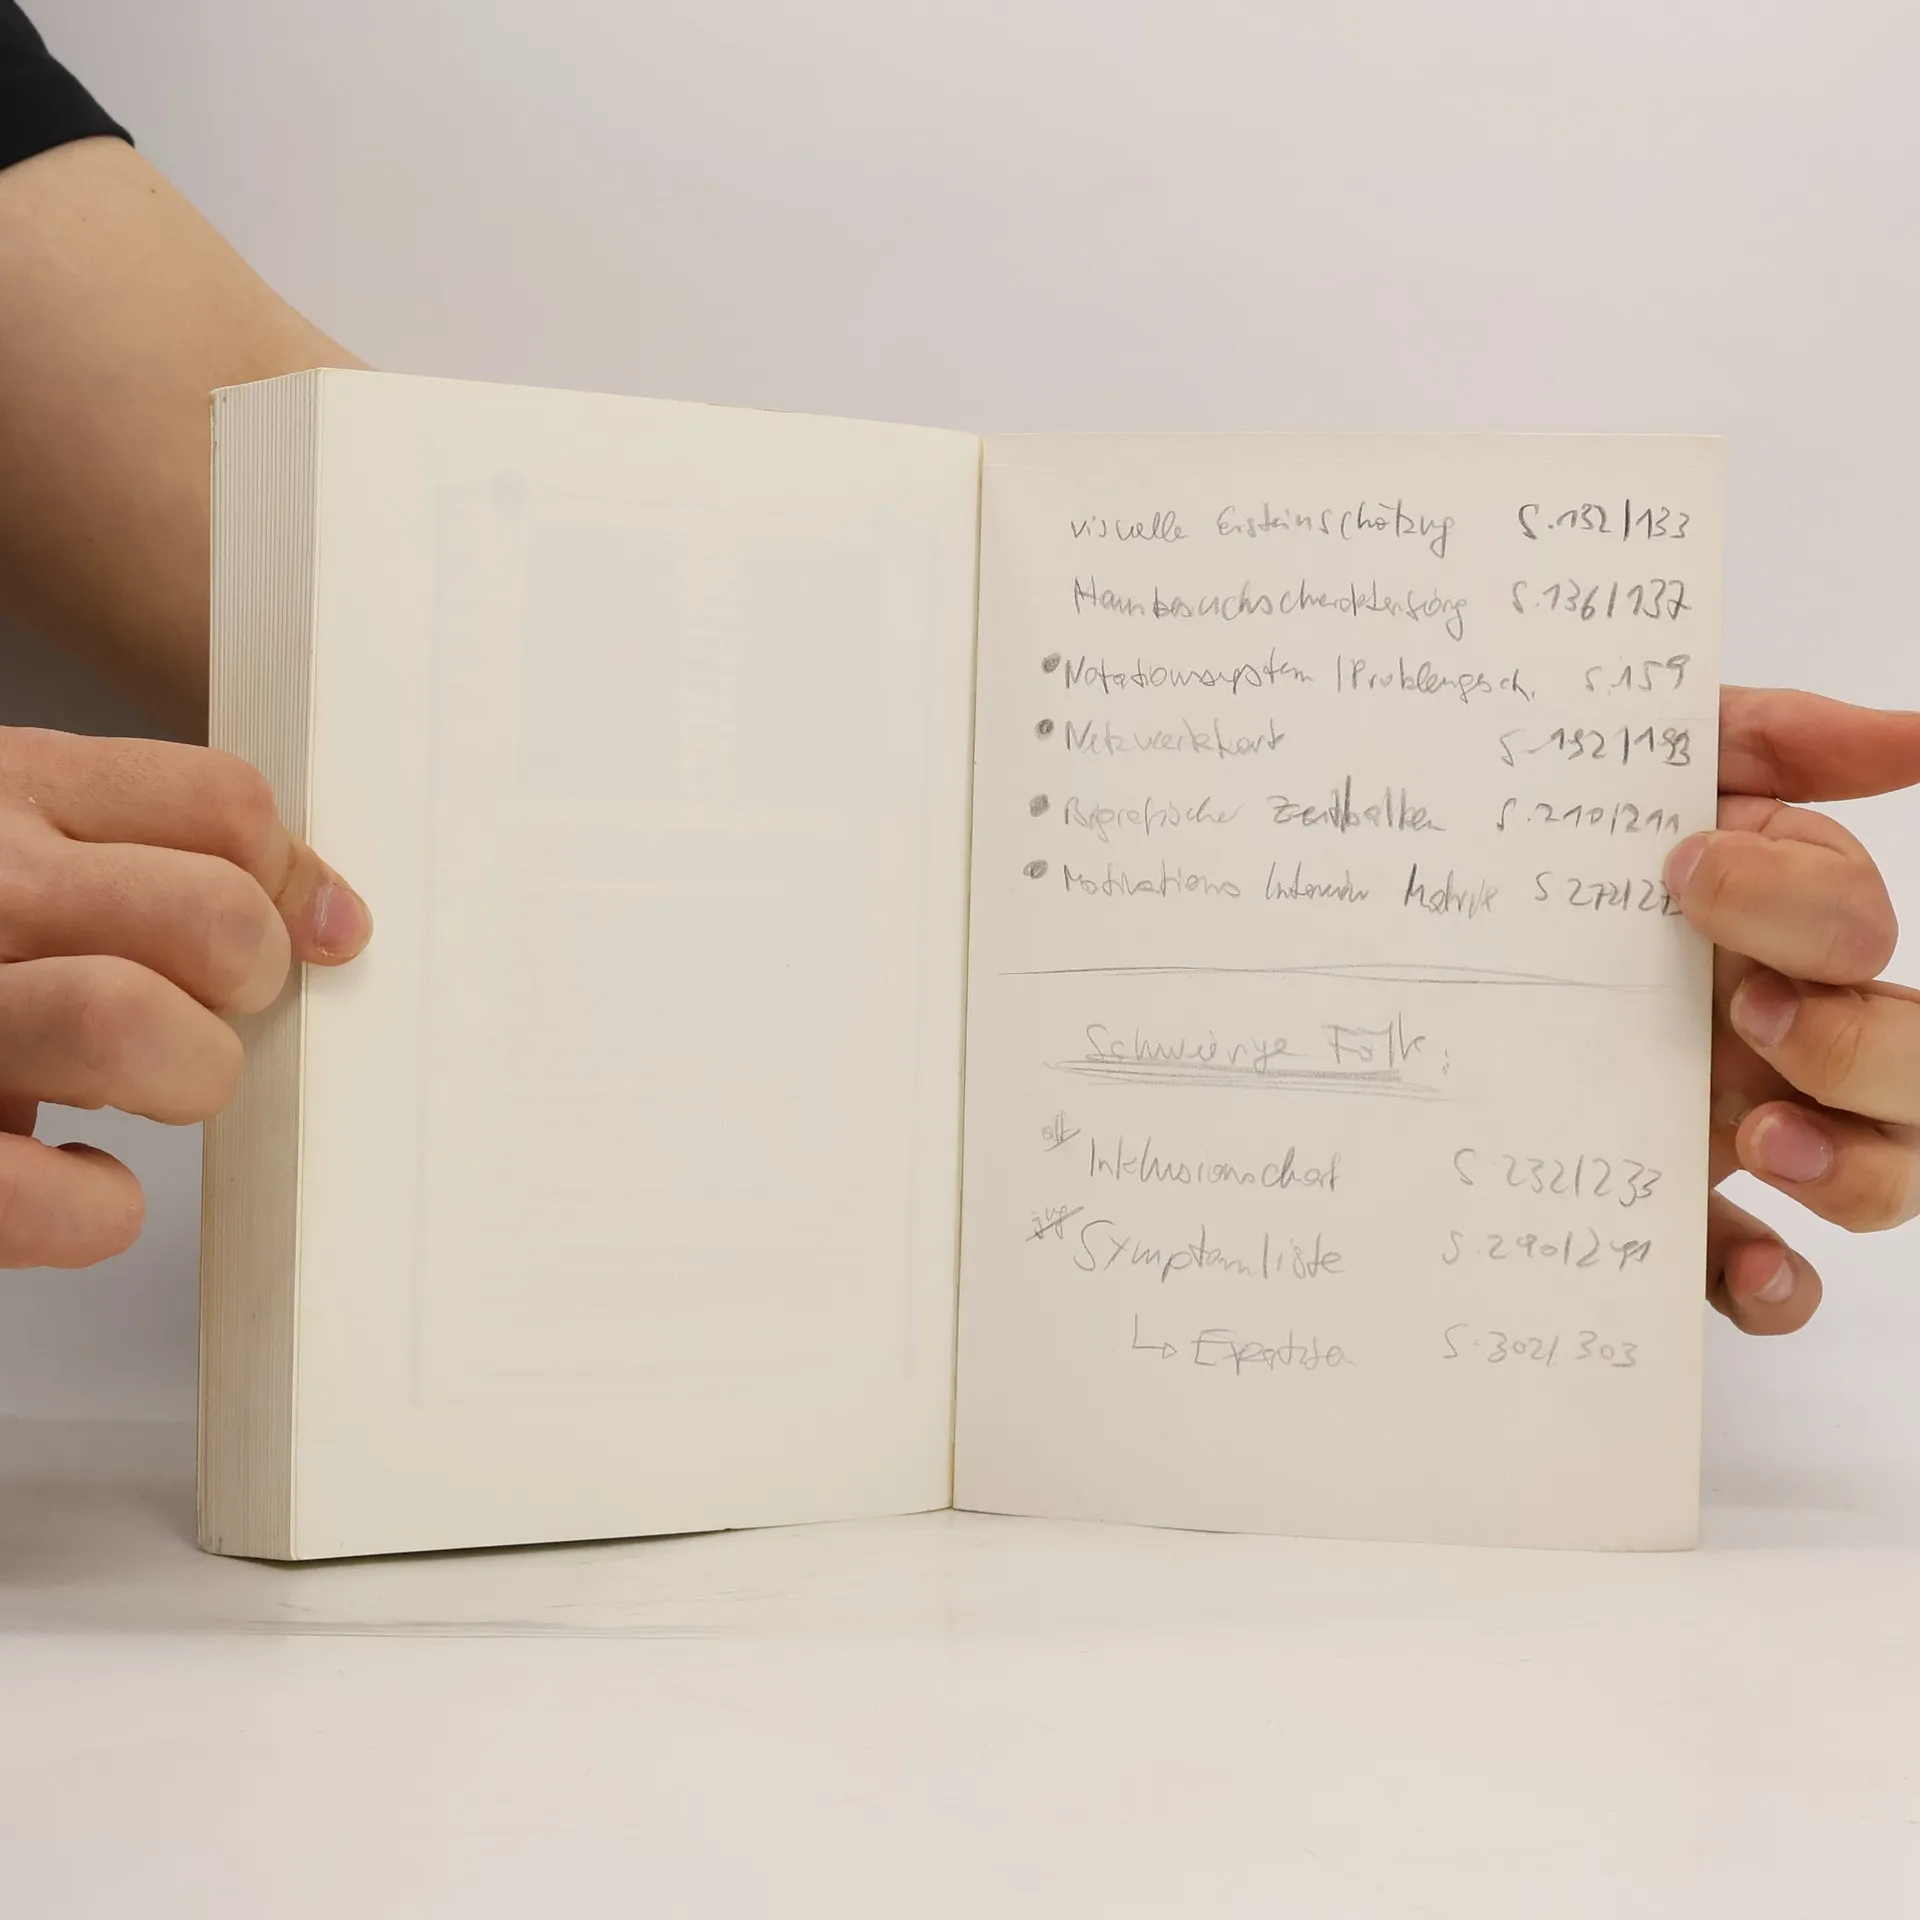 visuelle Ersteinschätzung S. 132/133
S. 136/137
Notationssystem / Problemgesch. S. 159
Netzwerkkart S. 192/193
Biografischer Zeitbalken S. 210/211
Motivations Interview Matrix S 272/27
Schwierige Fälle:
Inklusionschart S. 232/233
Symptomliste S. 290/291
↳ S. 302/303